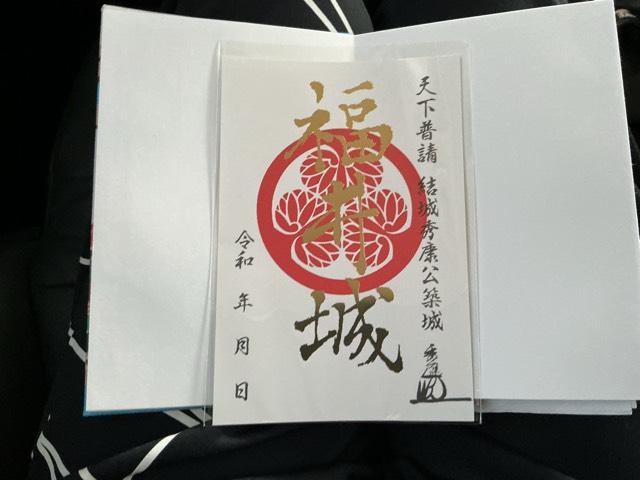 天下普請 結城秀康公築城
福井城
令和 年 月 日